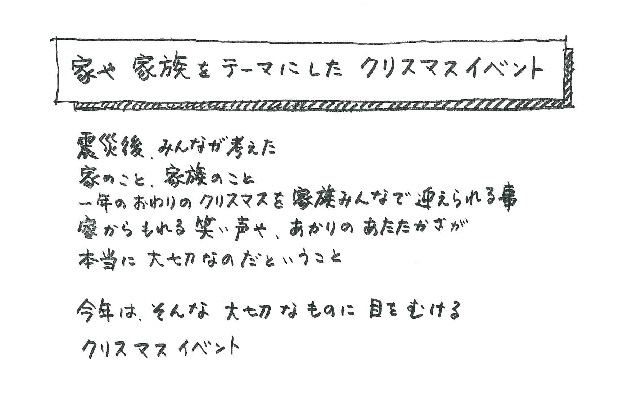 家や家族をテーマにしたクリスマスイベント
震災後、みんなが考えた
家のこと、家族のこと
一年のおわりのクリスマスを家族みんなで迎えられる事
窓からもれる笑い声や、あかりのあたたかさが
本当に大切なのだということ
今年は、そんな大切なものに目をむける
クリスマスイベント